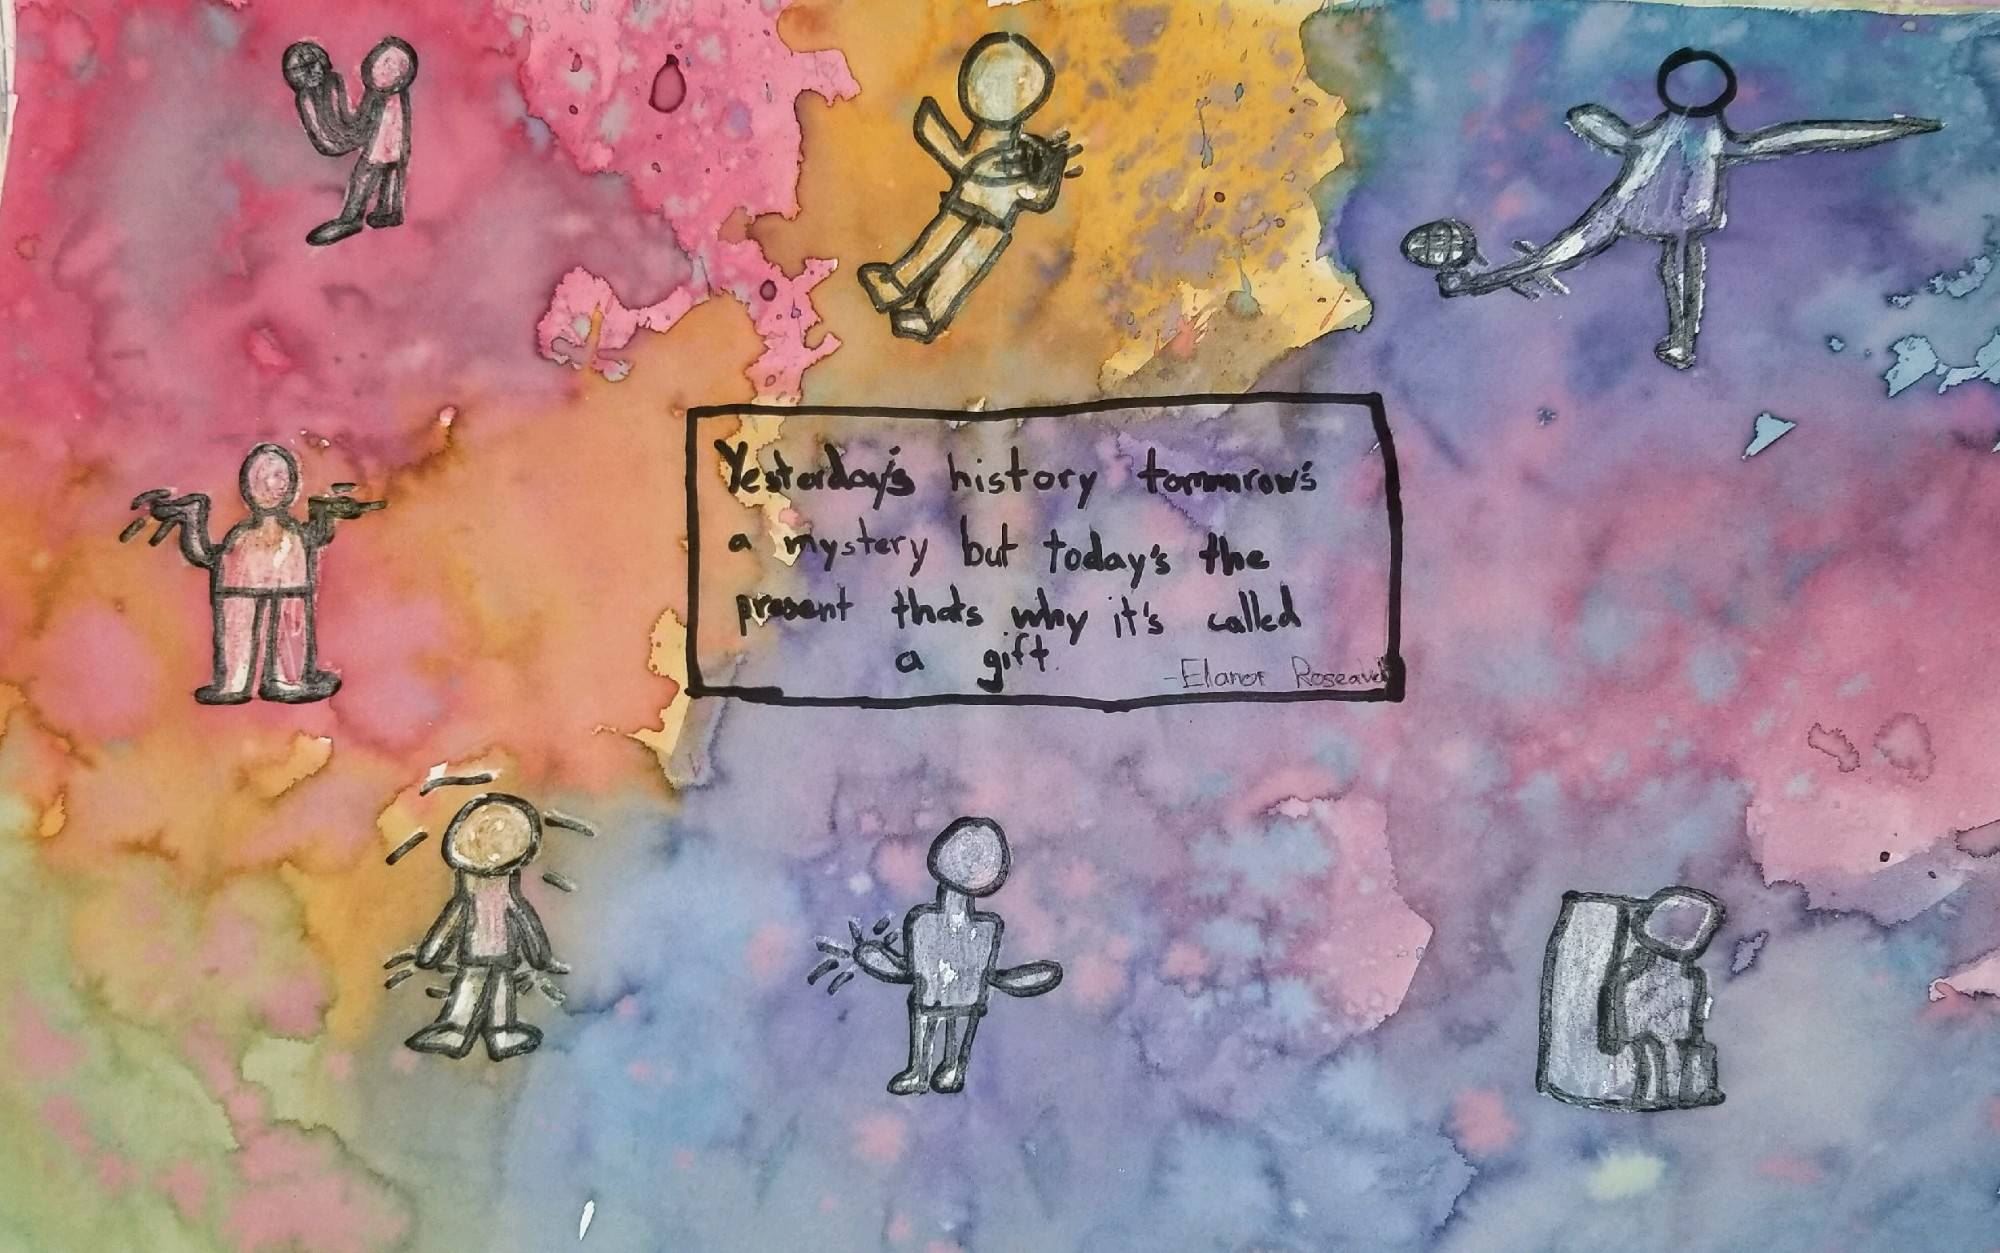 Yesterday's history tommrow's
a mystery but today's the
present thats why it's called
a gift.
-Elanor Roseavelt